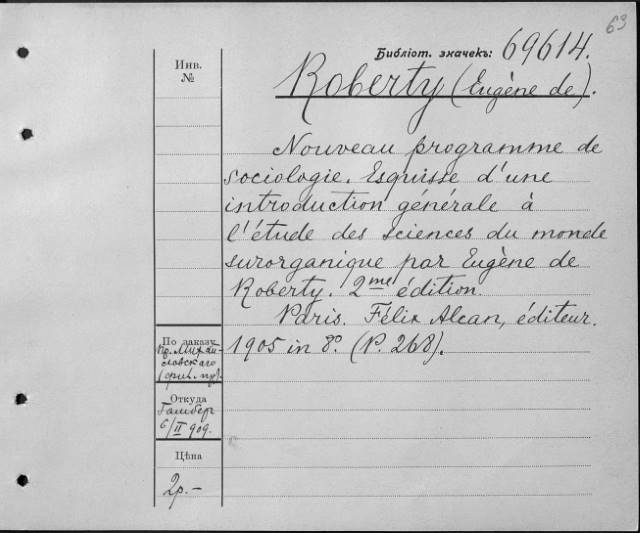 63
Библіот. значекъ: 69614.
Инв.
№
Roberty (Eugène de).
Nouveau programme de
sociologie. Esquisse d'une
introduction générale à
l'étude des sciences du monde
surorganique par Eugène de
Roberty. 2me édition.
Paris. Félix Alcan, éditeur.
1905 in 8º. (P. 268).
По заказу
Пр. Михай-
ловскаго
Откуда
Гамбер
6/II 909.
Цѣна
2р.-